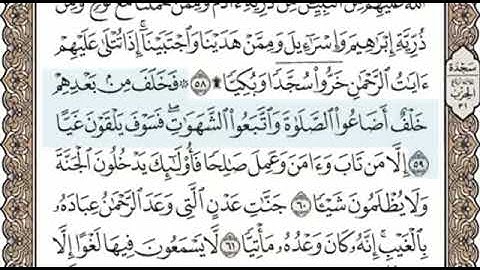 ذُرِّيَّةِ إِبْرَٰهِيمَ وَإِسْرَٰٓءِيلَ وَمِمَّنْ هَدَيْنَا وَٱجْتَبَيْنَآ إِذَا تُتْلَىٰ عَلَيْهِمْ
ءَايَٰتُ ٱلرَّحْمَٰنِ خَرُّوا۟ سُجَّدًا وَبُكِيًّا ۩ ٥٨ فَخَلَفَ مِنۢ بَعْدِهِمْ
خَلْفٌ أَضَاعُوا۟ ٱلصَّلَوٰةَ وَٱتَّبَعُوا۟ ٱلشَّهَوَٰتِ ۖ فَسَوْفَ يَلْقَوْنَ غَيًّا
٥٩ إِلَّا مَن تَابَ وَءَامَنَ وَعَمِلَ صَٰلِحًا فَأُو۟لَٰٓئِكَ يَدْخُلُونَ ٱلْجَنَّةَ
وَلَا يُظْلَمُونَ شَيْـًٔا ٦٠ جَنَّٰتِ عَدْنٍ ٱلَّتِى وَعَدَ ٱلرَّحْمَٰنُ عِبَادَهُۥ
بِٱلْغَيْبِ ۚ إِنَّهُۥ كَانَ وَعْدُهُۥ مَأْتِيًّا ٦١ لَّا يَسْمَعُونَ فِيهَا لَغْوًا إِلَّا
سَجْدَة